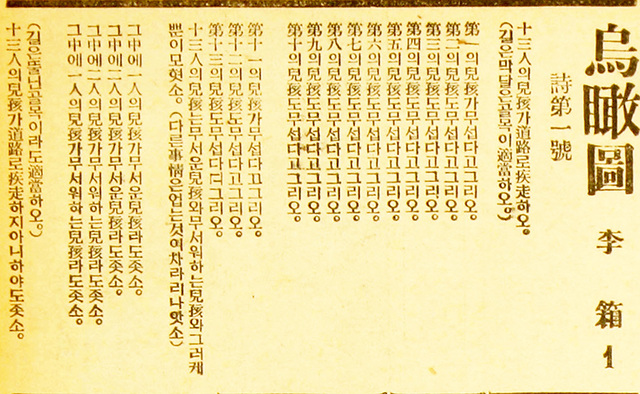 烏瞰圖
李 箱 1
詩第一號
十三人의兒孩가道路로疾走하오。
(길은막달은골목이適當하오。)
第一의兒孩가무섭다고그리오。
第二의兒孩도무섭다고그리오。
第三의兒孩도무섭다고그리오。
第四의兒孩도무섭다고그리오。
第五의兒孩도무섭다고그리오。
第六의兒孩도무섭다고그리오。
第七의兒孩도무섭다고그리오。
第八의兒孩도무섭다고그리오。
第九의兒孩도무섭다고그리오。
第十의兒孩도무섭다고그리오。
第十一의兒孩가무섭다고그리오。
第十二의兒孩도무섭다고그리오。
第十三의兒孩도무섭다고그리오。
十三人의兒孩는무서운兒孩와무서워하는兒孩와그러케
뿐이모혓소。(다른事情은업는것이차라리나앗소)
그中에一人의兒孩가무서운兒孩라도좃소。
그中에二人의兒孩가무서운兒孩라도좃소。
그中에二人의兒孩가무서워하는兒孩라도좃소。
그中에一人의兒孩가무서워하는兒孩라도좃소。
(길은뚤닌골목이라도適當하오。)
十三人의兒孩가道路로疾走하지아니하야도좃소。